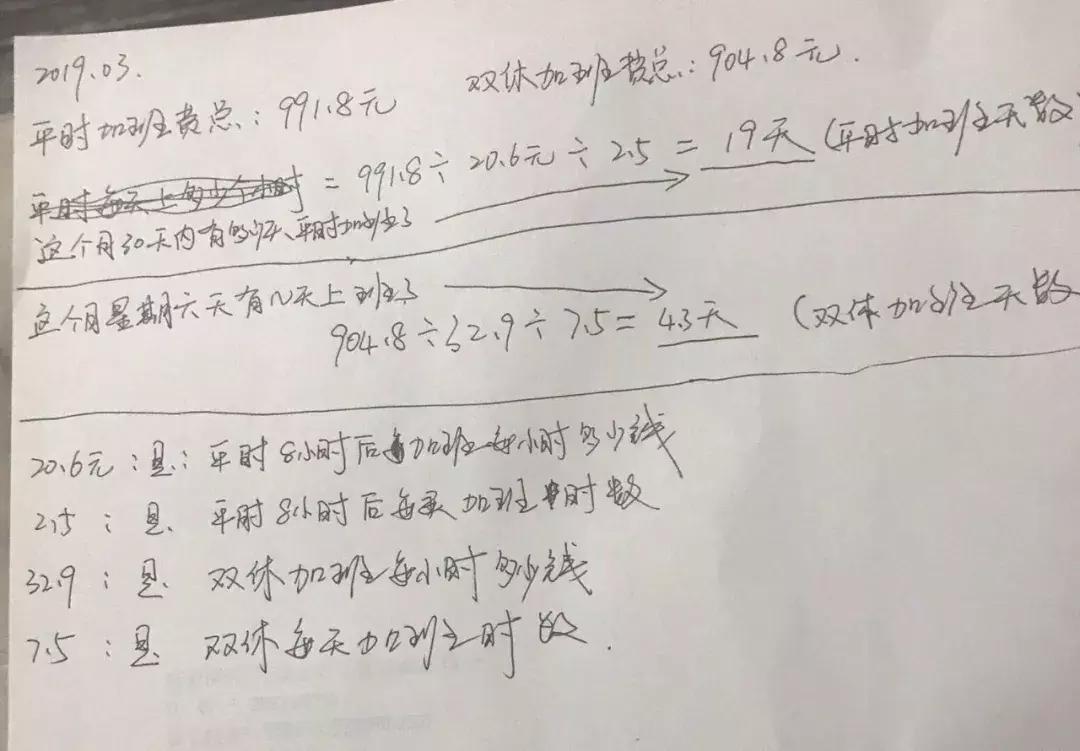 2019.03.
平时加班费总：991.8元 双休加班费总：904.8元.
= 991.8÷20.6元÷2.5 = 19天 (平时加班天数
这个月30天内有多少天、平时加班了
这个月星期六天有几天上班了
904.8÷32.9÷7.5= 4.3天 (双休加班天数
20.6元：是：平时8小时后加班每小时多少钱
2.5：是. 平时8小时后每天加班时数
32.9：是. 双休加班每小时多少钱
7.5：是. 双休每天加班时数.